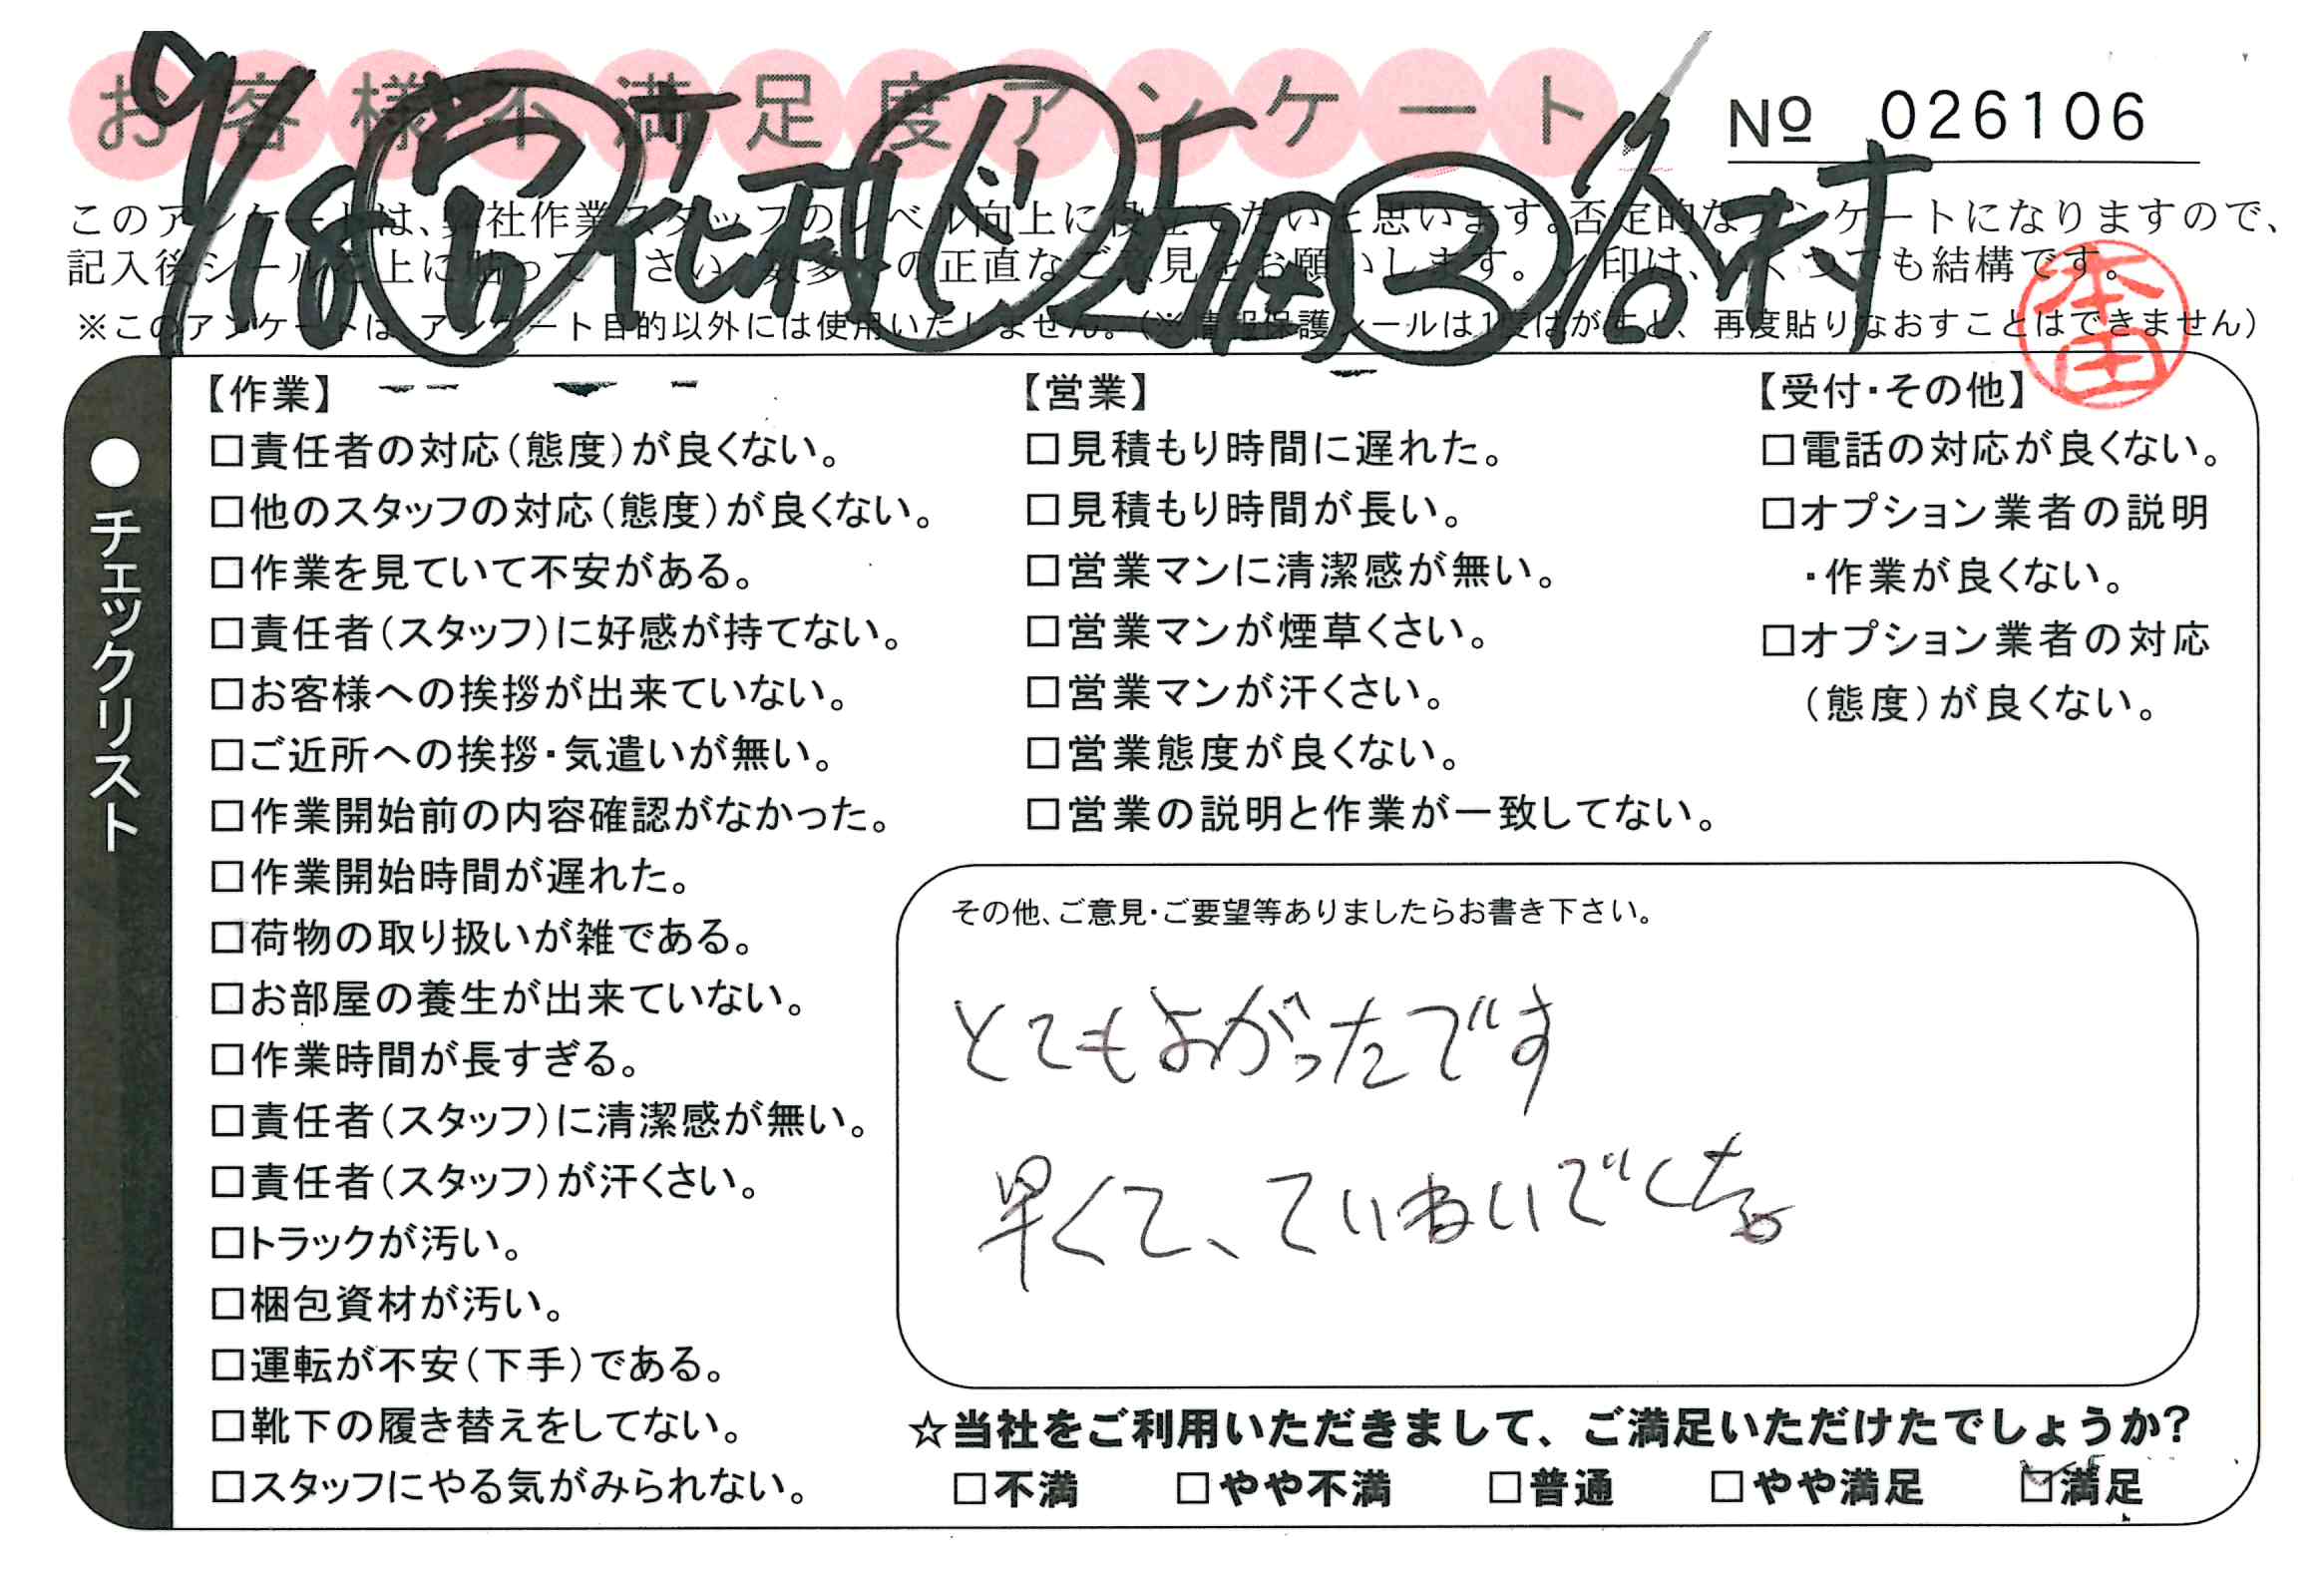 お客様不満足度アンケート
№ 026106
9/18
このアンケートは、弊社作業スタッフのレベル向上に役立てたいと思います。否定的なアンケートになりますので、
記入後シールを上に貼って下さい。数多くの正直なご意見をお願いします。レ印は、いくつでも結構です。
※このアンケートは、アンケート目的以外には使用いたしません。(※情報保護シールは1度はがすと、再度貼りなおすことはできません)
本田
●チェックリスト
【作業】
□責任者の対応(態度)が良くない。
□他のスタッフの対応(態度)が良くない。
□作業を見ていて不安がある。
□責任者(スタッフ)に好感が持てない。
□お客様への挨拶が出来ていない。
□ご近所への挨拶・気遣いが無い。
□作業開始前の内容確認がなかった。
□作業開始時間が遅れた。
□荷物の取り扱いが雑である。
□お部屋の養生が出来ていない。
□作業時間が長すぎる。
□責任者(スタッフ)に清潔感が無い。
□責任者(スタッフ)が汗くさい。
□トラックが汚い。
□梱包資材が汚い。
□運転が不安(下手)である。
□靴下の履き替えをしてない。
□スタッフにやる気がみられない。
【営業】
□見積もり時間に遅れた。
□見積もり時間が長い。
□営業マンに清潔感が無い。
□営業マンが煙草くさい。
□営業マンが汗くさい。
□営業態度が良くない。
□営業の説明と作業が一致してない。
【受付・その他】
□電話の対応が良くない。
□オプション業者の説明
・作業が良くない。
□オプション業者の対応
(態度)が良くない。
その他、ご意見・ご要望等ありましたらお書き下さい。
とてもよかったです
早くて、ていねいでした。
☆当社をご利用いただきまして、ご満足いただけたでしょうか?
□不満 □やや不満 □普通 □やや満足 ☑満足